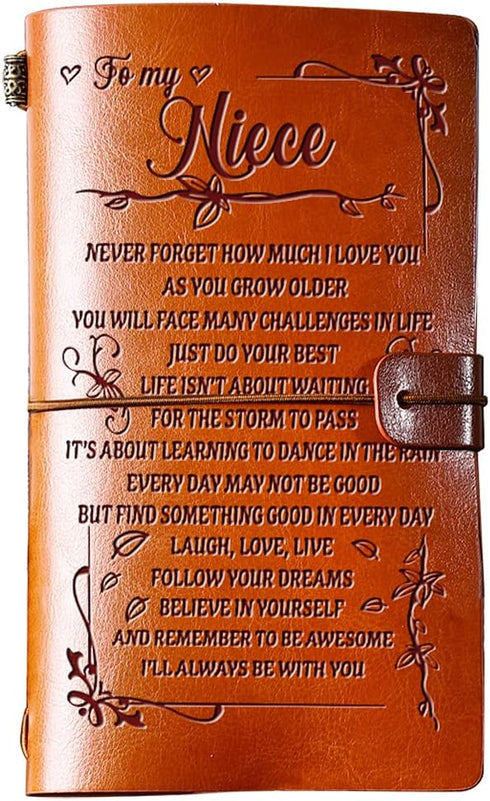 To my
Niece
NEVER FORGET HOW MUCH I LOVE YOU
AS YOU GROW OLDER
YOU WILL FACE MANY CHALLENGES IN LIFE
JUST DO YOUR BEST
LIFE ISN'T ABOUT WAITING
FOR THE STORM TO PASS
IT'S ABOUT LEARNING TO DANCE IN THE RAIN
EVERY DAY MAY NOT BE GOOD
BUT FIND SOMETHING GOOD IN EVERY DAY
LAUGH, LOVE, LIVE
FOLLOW YOUR DREAMS
BELIEVE IN YOURSELF
AND REMEMBER TO BE AWESOME
I'LL ALWAYS BE WITH YOU